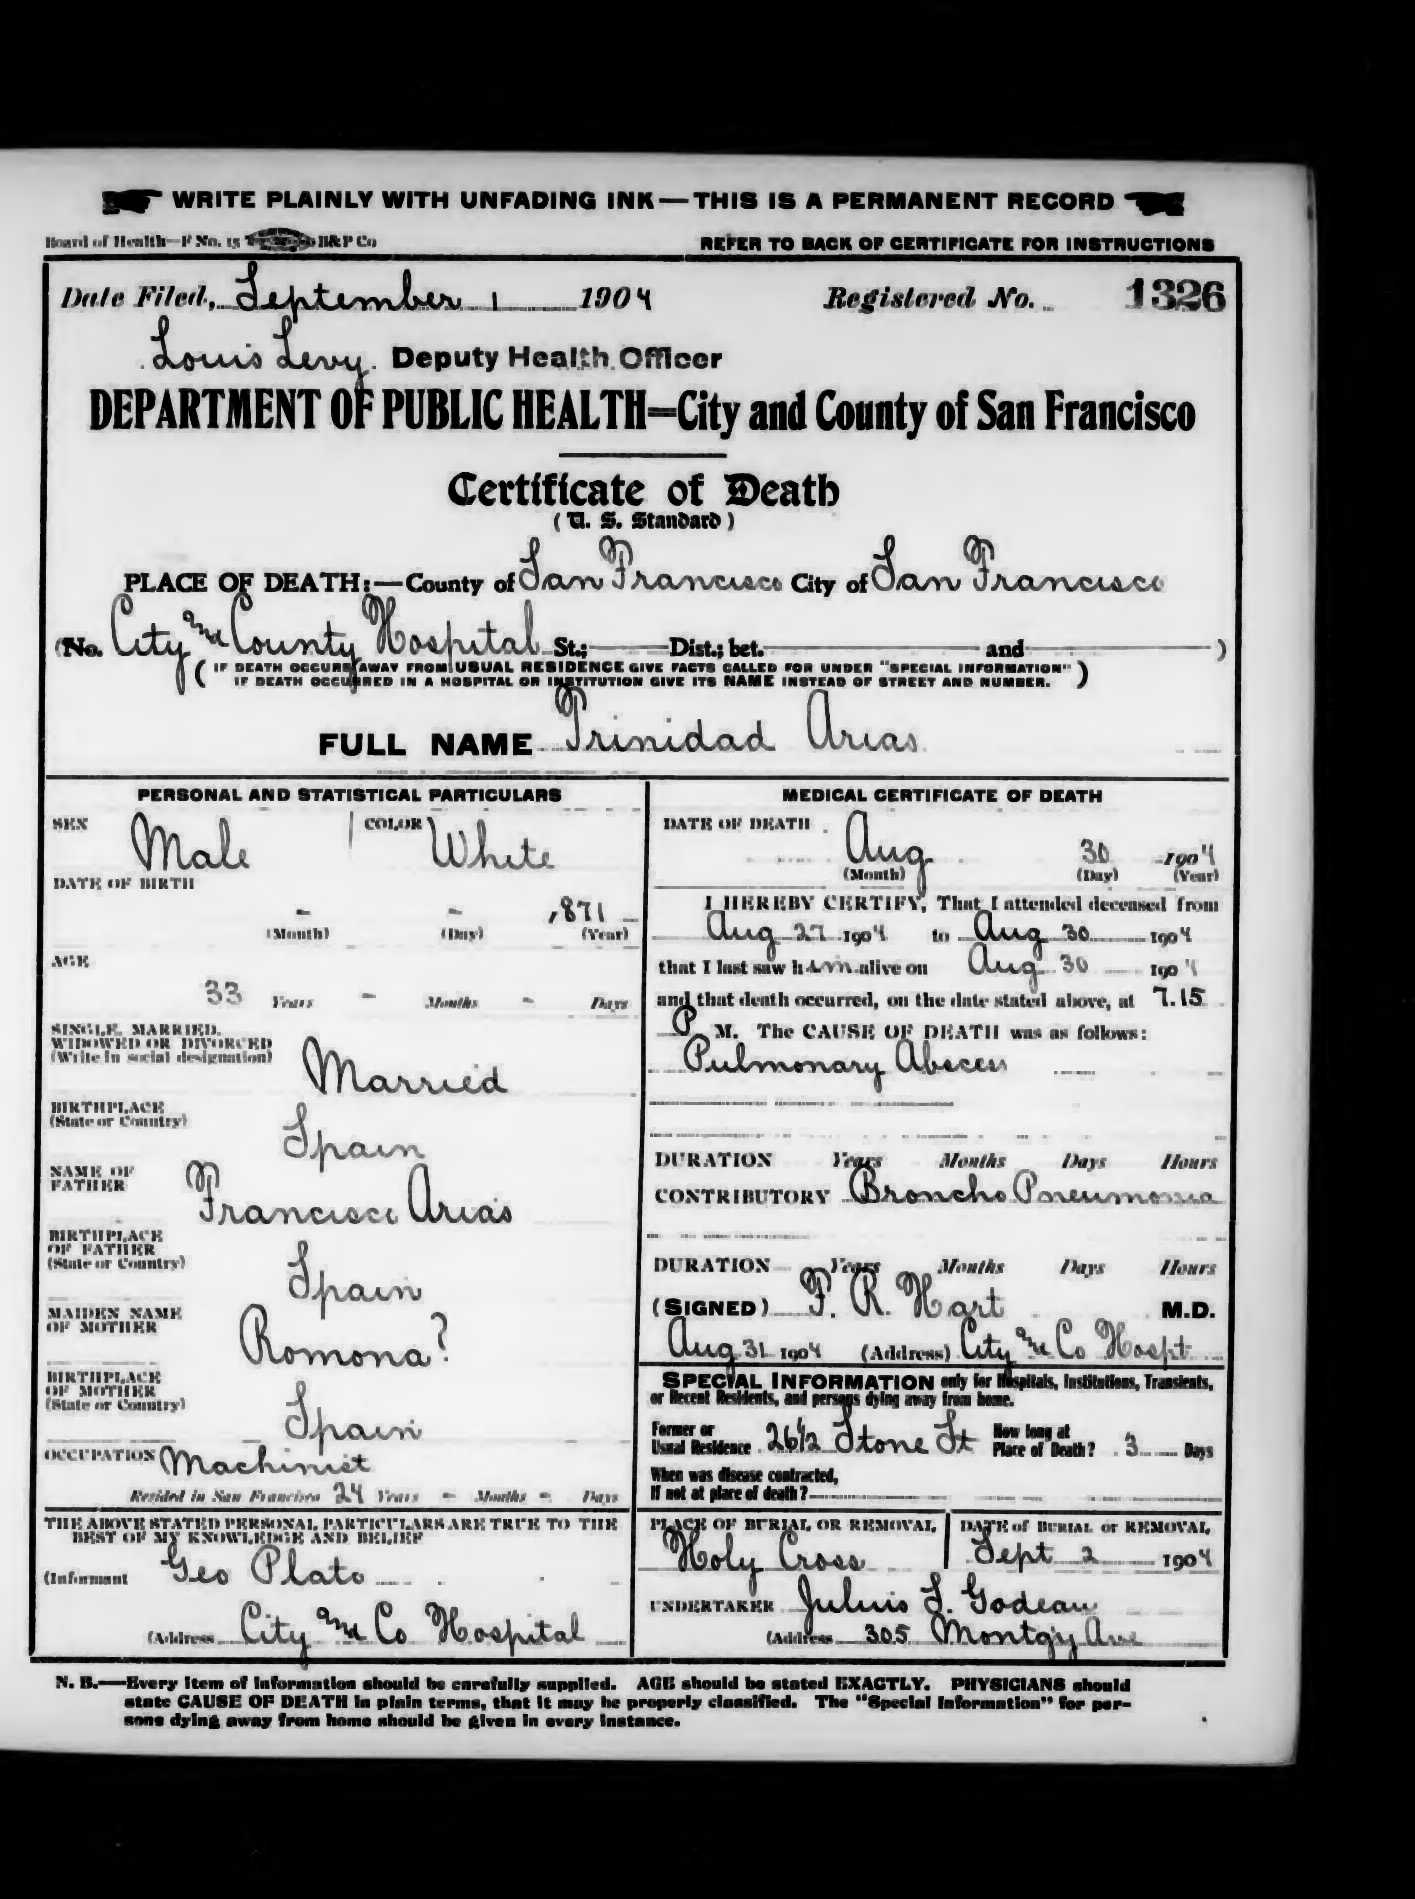 WRITE PLAINLY WITH UNFADING INK—THIS IS A PERMANENT RECORD
Board of Health—F No. 15 B&P Co
REFER TO BACK OF CERTIFICATE FOR INSTRUCTIONS
Date Filed, September 1 1904 Registered No. 1326
Louis Levy. Deputy Health Officer
DEPARTMENT OF PUBLIC HEALTH=City and County of San Francisco
Certificate of Death
(U. S. Standard)
PLACE OF DEATH:—County of San Francisco City of San Francisco
(No. City and County Hospital St.; Dist.; bet. and )
(IF DEATH OCCURS AWAY FROM USUAL RESIDENCE GIVE FACTS CALLED FOR UNDER "SPECIAL INFORMATION"
IF DEATH OCCURRED IN A HOSPITAL OR INSTITUTION GIVE ITS NAME INSTEAD OF STREET AND NUMBER.)
FULL NAME Trinidad Arias
PERSONAL AND STATISTICAL PARTICULARS
SEX Male COLOR White
DATE OF BIRTH
- - 1871
(Month) (Day) (Year)
AGE
33 Years - Months - Days
SINGLE, MARRIED,
WIDOWED OR DIVORCED
(Write in social designation) Married
BIRTHPLACE
(State or Country) Spain
NAME OF
FATHER Francisco Arias
BIRTHPLACE
OF FATHER
(State or Country) Spain
MAIDEN NAME
OF MOTHER Romona?
BIRTHPLACE
OF MOTHER
(State or Country) Spain
OCCUPATION Machinist
Resided in San Francisco 24 Years - Months - Days
THE ABOVE STATED PERSONAL PARTICULARS ARE TRUE TO THE
BEST OF MY KNOWLEDGE AND BELIEF
(Informant Geo Plato
(Address City and Co Hospital
MEDICAL CERTIFICATE OF DEATH
DATE OF DEATH
Aug 30 1904
(Month) (Day) (Year)
I HEREBY CERTIFY, That I attended deceased from
Aug 27 1904 to Aug 30 1904
that I last saw him alive on Aug 30 1904
and that death occurred, on the date stated above, at 7.15
P M. The CAUSE OF DEATH was as follows:
Pulmonary Abscess
DURATION Years Months Days Hours
CONTRIBUTORY Broncho Pneumonia
DURATION Years Months Days Hours
(SIGNED) F. R. Hart M.D.
Aug 31 1904 (Address) City and Co Hospt
SPECIAL INFORMATION only for Hospitals, Institutions, Transients,
or Recent Residents, and persons dying away from home.
Former or
Usual Residence 26½ Stone St How long at
Place of Death? 3 Days
When was disease contracted,
If not at place of death?
PLACE OF BURIAL OR REMOVAL DATE of BURIAL or REMOVAL
Holy Cross Sept 2 1904
UNDERTAKER Julius S. Godeau
(Address 305 Montg'y Ave
N. B.—Every item of information should be carefully supplied. AGE should be stated EXACTLY. PHYSICIANS should
state CAUSE OF DEATH in plain terms, that it may be properly classified. The "Special Information" for per-
sons dying away from home should be given in every instance.